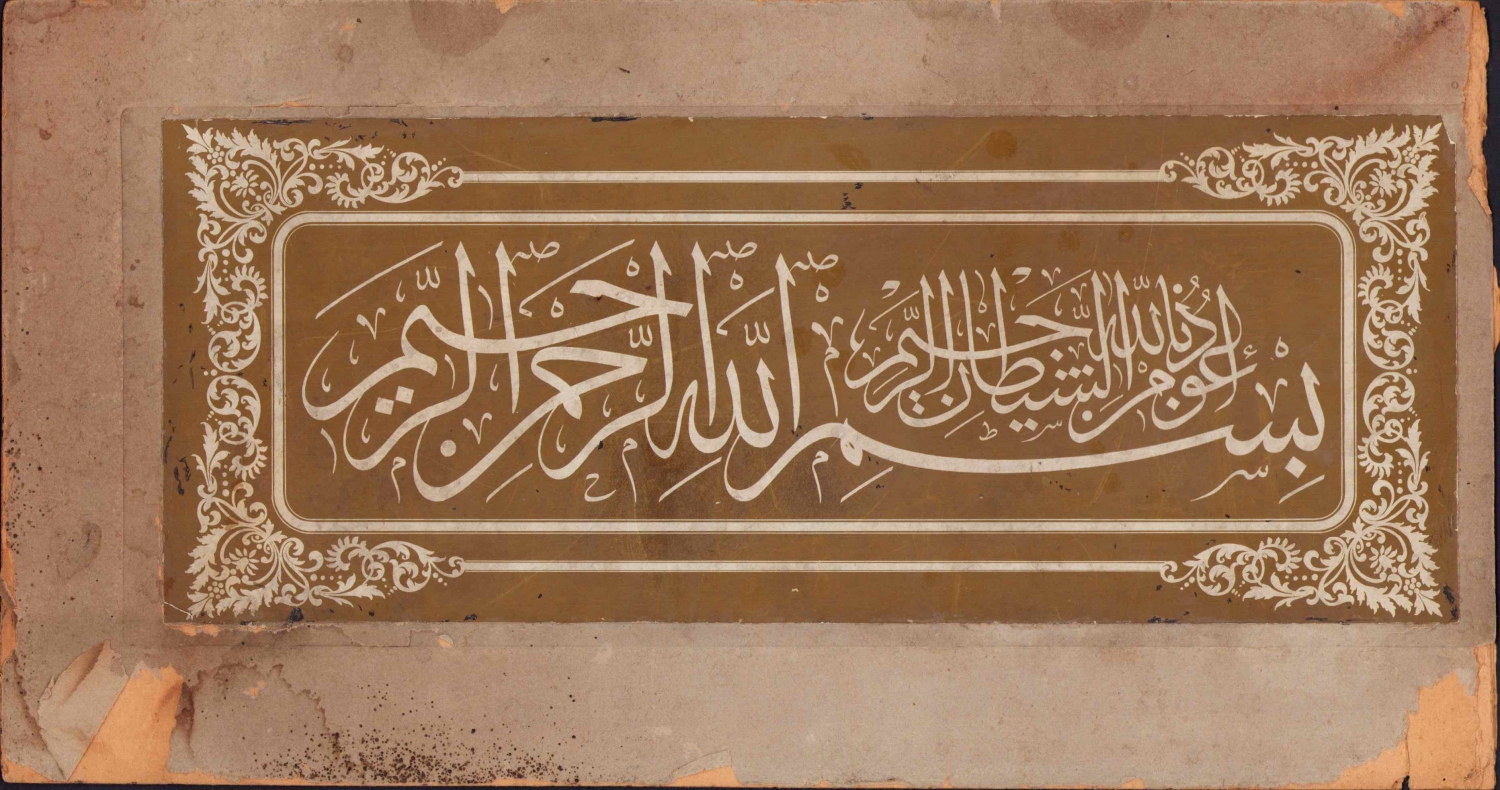 اعوذ بالله من الشيطان الرجيم
بِسْمِ اللّٰهِ الرَّحْمٰنِ الرَّحِيمِ